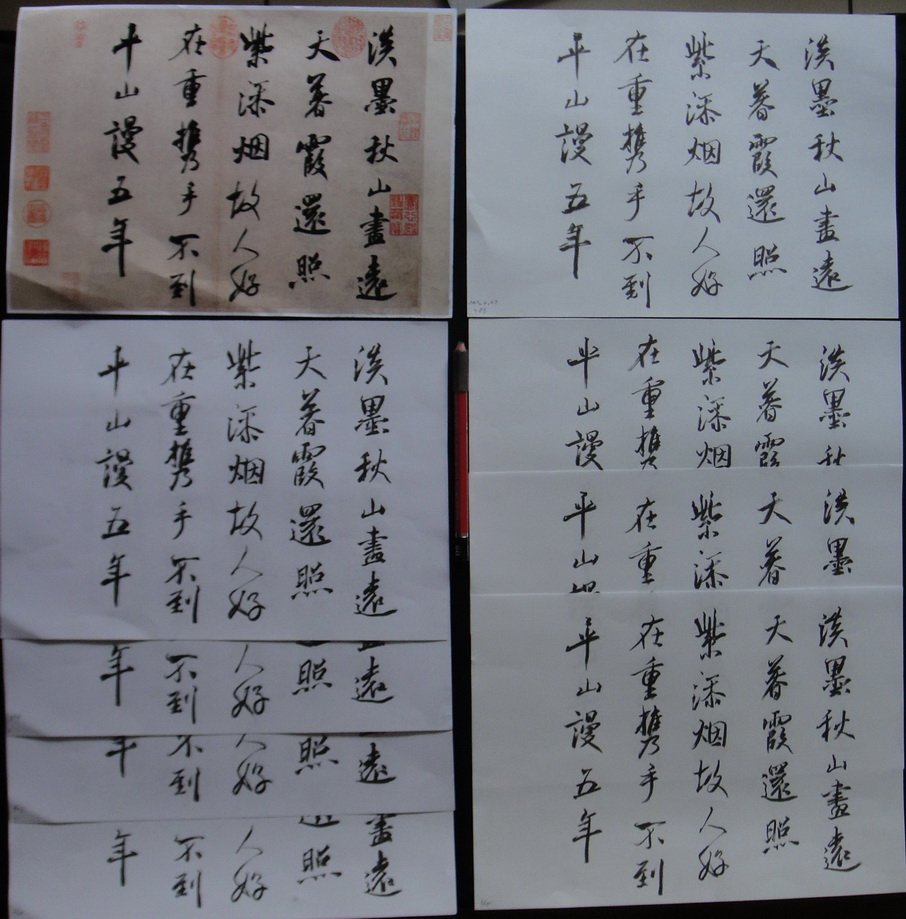 淡墨秋山畫遠
天暮霞還照
紫添烟故人好
在重携手不到
平山謾五年
淡墨秋山畫遠
天暮霞還照
紫添烟故人好
在重携手不到
平山謾五年
淡墨秋山畫遠
天暮霞還照
紫添烟故人好
在重携手不到
平山謾五年
遠
照
人好
不到
年
遠
照
好
不到
畫遠
照
人好
不到
年
淡墨
天暮霞
紫添烟
在重携
平山謾
淡墨
天暮
紫添
在重
平山
淡墨秋山畫遠
天暮霞還照
紫添烟故人好
在重携手不到
平山謾五年